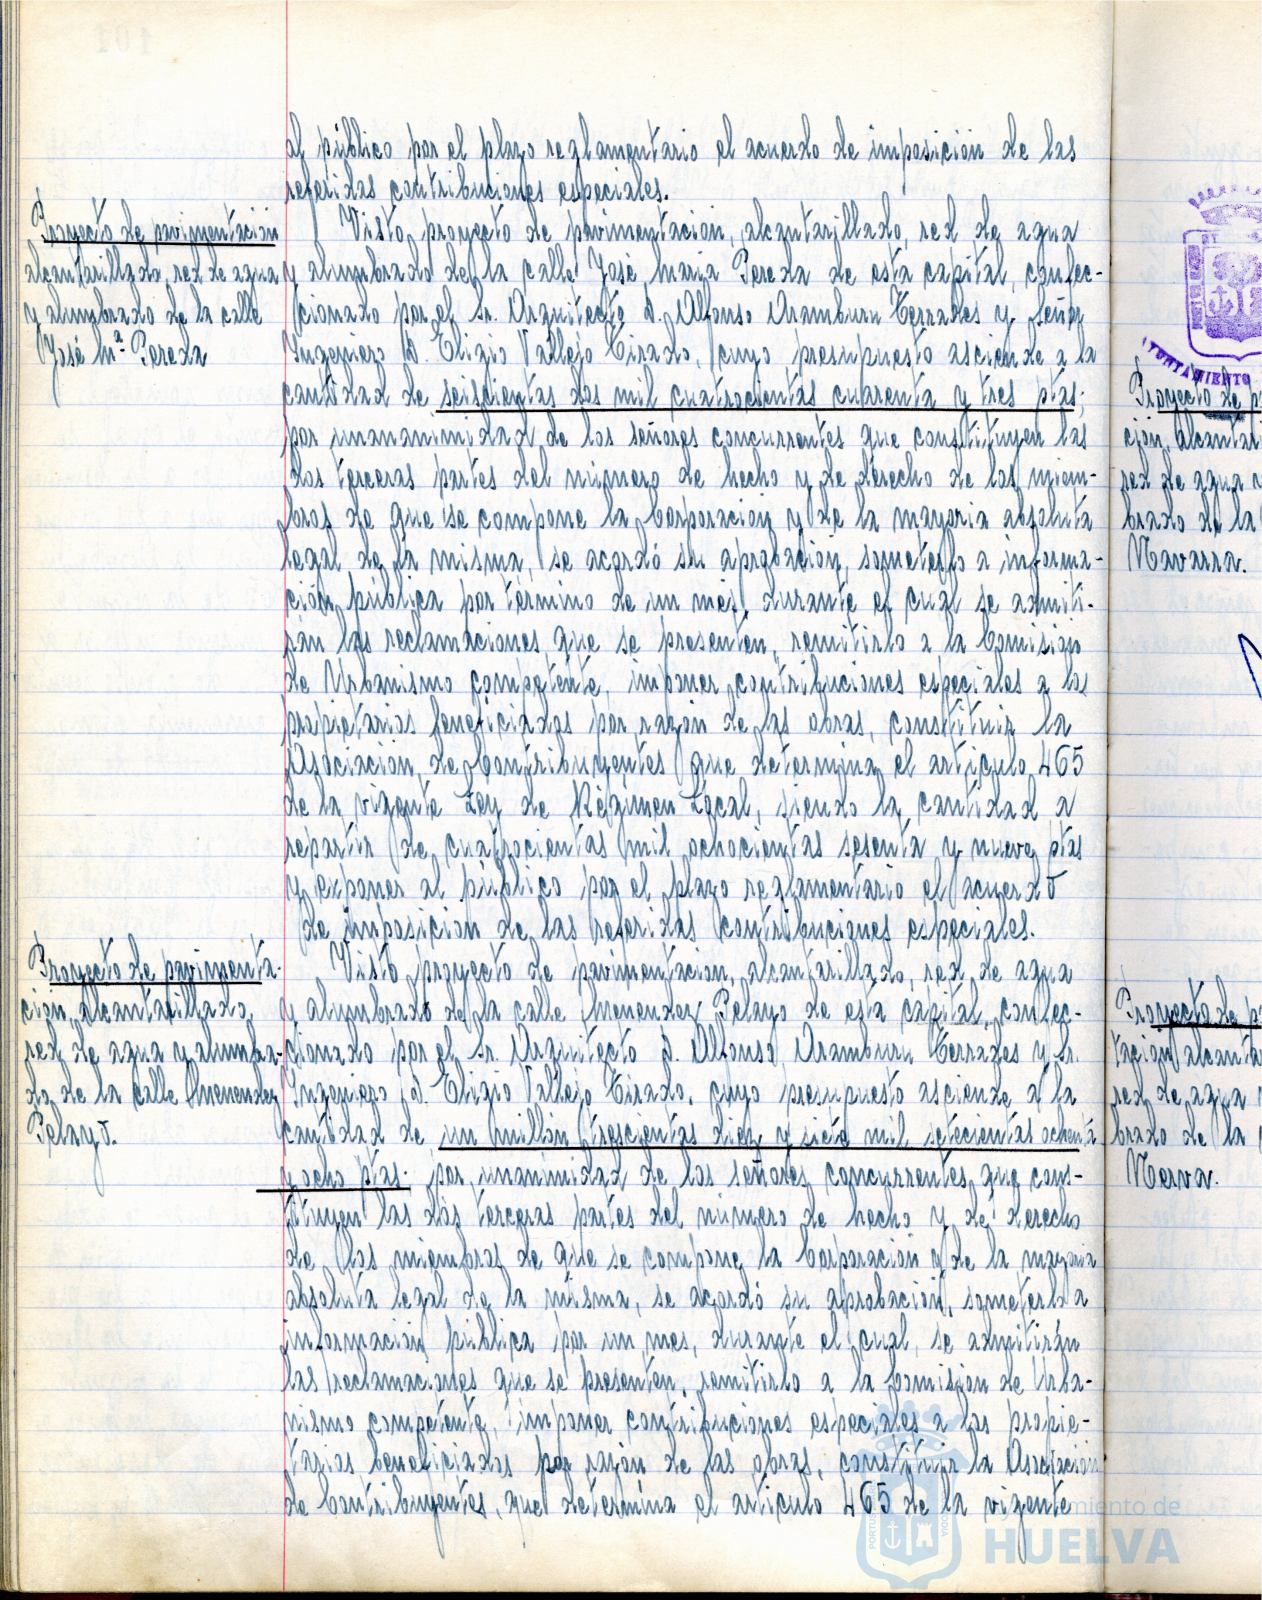 al público por el plazo reglamentario el acuerdo de imposición de las
referidas contribuciones especiales.
Proyecto de pavimentación
alcantarillado, red de agua
y alumbrado de la calle
José Mª Pereda
Visto proyecto de pavimentación, alcantarillado, red de agua
y alumbrado de la calle José Maria Pereda de esta capital, confec-
cionado por el Sr. Arquitecto D. Alfonso Aramburu Terrades y Señor
Ingeniero D. Eligio Vallejo Tirado, cuyo presupuesto asciende a la
cantidad de seiscientas dos mil cuatrocientas cuarenta y tres ptas;
por unanimidad de los señores concurrentes que constituyen las
dos terceras partes del número de hecho y de derecho de los miem-
bros de que se compone la Corporación y de la mayoria absoluta
legal de la misma, se acordó su aprobación, someterlo a informa-
ción pública por término de un mes, durante el cual se admiti-
rán las reclamaciones que se presenten, remitirlo a la Comisión
de Urbanismo competente, imponer contribuciones especiales a los
propietarios beneficiados por razón de las obras, constituir la
Asociación de Contribuyentes que determina el artículo 465
de la vigente Ley de Régimen Local, siendo la cantidad a
repartir de cuatrocientas mil ochocientas sesenta y nueve ptas
y exponer al público por el plazo reglamentario el acuerdo
de imposicion de las referidas contribuciones especiales.
Proyecto de pavimenta-
ción, alcantarillado,
red de agua y alumbra-
do de la calle Menendez
Pelayo.
Visto proyecto de pavimentacion, alcantarillado, red de agua
y alumbrado de la calle Menendez Pelayo de esta capital, confec-
cionado por el Sr. Arquitecto D. Alfonso Aramburu Terrades y Sr.
Ingeniero D. Eligio Vallejo Tirado, cuyo presupuesto asciende a la
cantidad de un millón trescientas diez y siete mil setecientas ochenta
y ocho ptas. por unanimidad de los señores concurrentes que cons-
tituyen las dos terceras partes del número de hecho y de derecho
de los miembros de que se compone la Corporación y de la mayoria
absoluta legal de la misma, se acordó su aprobación, someterlo a
información pública por un mes, durante el cual, se admitirán
las reclamaciones que se presenten, remitirlo a la Comisión de Urba-
nismo competente, imponer contribuciones especiales a los propie-
tarios beneficiados por razón de las obras, constituir la Asociación
de Contribuyentes, que determina el artículo 465 de la vigente
AYUNTAMIENTO
Proyecto de p
ción, alcantari
red de agua y
brado de la
Navarra.
Proyecto de p
tación, alcanta
red de agua
brado de la
Nerva.
HUELVA